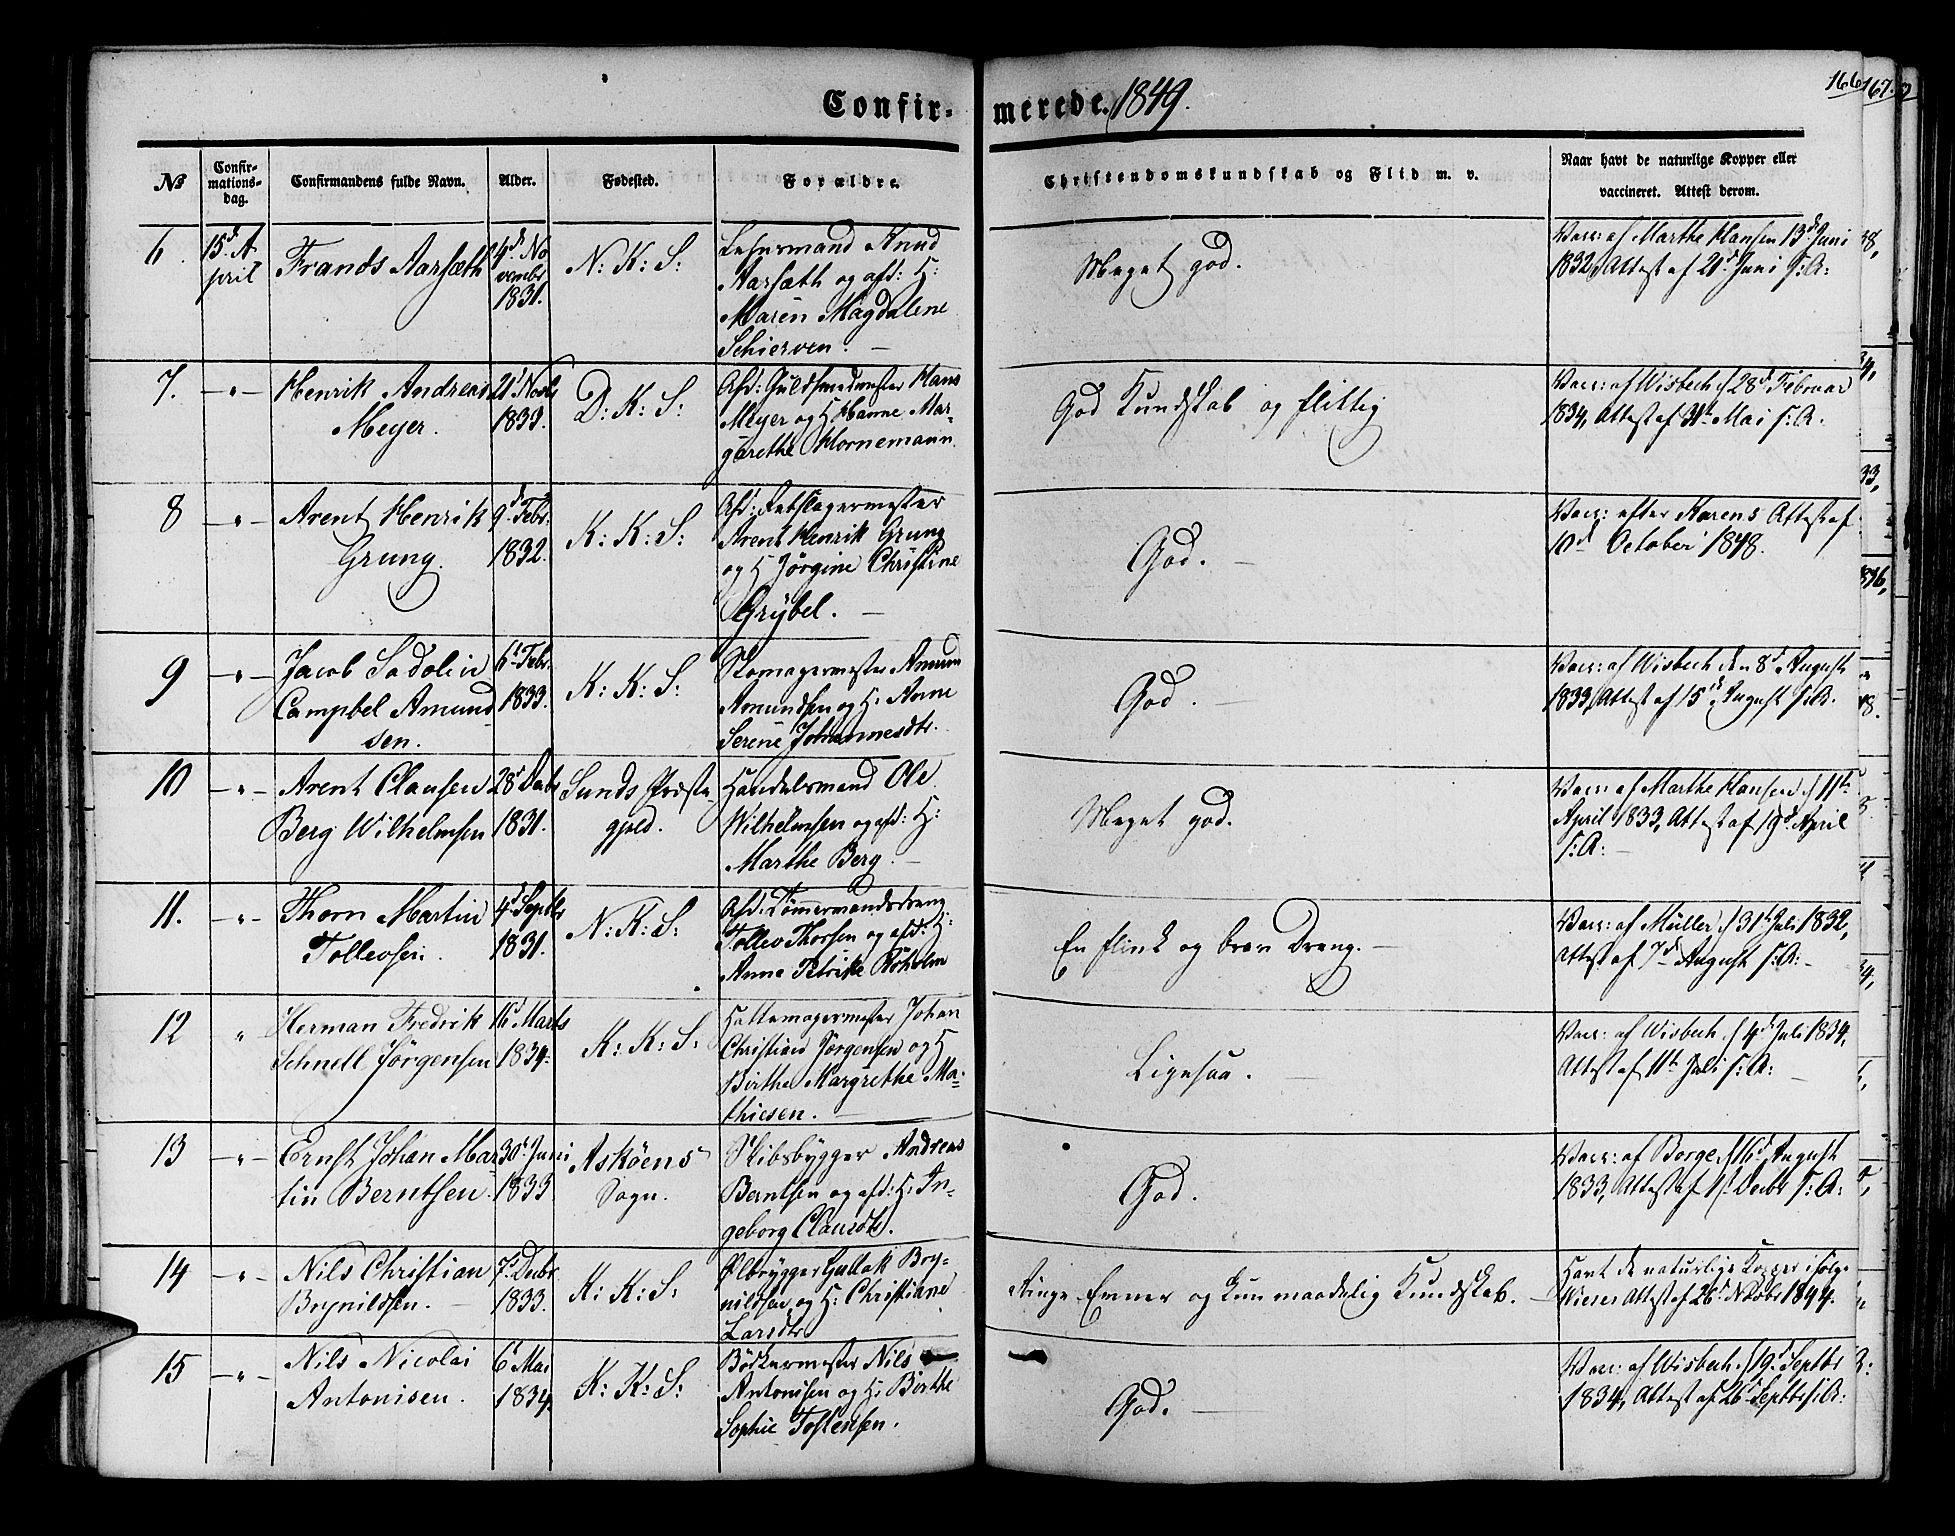 Confirmerede. 1849.
166
167
№
Confirmationsdag.
Confirmandens fulde Navn.
Alder.
Fødested.
Forældre.
Christendomskundskab og Flid m. v.
Naar havt de naturlige Kopper eller
vaccineret. Attest derom.
6.
15d. A
pril
Frands Aarsæth
4d No
vembr
1831.
N: K: S:
Knud
Aarsæth og afd: H:
Maren Magdalene
Schierven.
Meget god.
Vacc: af Marthe Hansen 13d Juni
1832, Attest af 21d Juni s: A:
7.
-"-
Henrik Andreas
Meyer.
21d Novbr
1833.
D: K: S:
Afd: Guldsmedmester Hans
Meyer og H Hanne Mar-
garethe Hornemann.
God Kundskab og flittig
Vacc: af Wisbech d 28d Februar
1834, Attest af 31te Mai s: A.
8
-"-
Arent Henrik
Grung.
9d Febr.
1832.
K: K: S:
Afd: Rebslagermester
Arent Henrik Grung
og H Jørgine Christine
Grybel.
God.
Vacc: efter Karens Attest af
10d October 1848.
9
-"-
Jacob Sadolin
Campbel Amund
sen.
6d Febr.
1833.
K: K: S:
Skomagermester Amund
Amundsen og H: Anne
Serine Johannesdtr.
God.
Vacc: af Wisbech den 8d August
1833, Attest af 15d August s: A.
10
-"-
Arent Clausen
Berg Wilhelmsen
28d Decbr
1831.
Sunds Præste-
gjeld.
Handelsmand Ole
Wilhelmsen og afd: H:
Marthe Berg.
Meget god.
Vacc: af Marthe Hansen d 11te
April 1833, Attest af 19d April
s: A:
11.
-"-
Thorn Martin
Tollevsen.
4d Septbr
1831.
N: K: S:
Afd: Tømmermandsdreng
Tollev Thorsen og afd: H:
Anne Petrike Røholm
En flink og brav Dreng.
Vacc: af Müller d 31te Juli 1832,
Attest af 7d August s: A:
12
"
Herman Fredrik
Schnell Jørgensen
16d Marts
1834.
K: K: S:
Hattemagermester Johan
Christian Jørgensen og H
Birthe Margrethe Ma-
thiesen.
Ligesaa.
Vacc: af Wisbech d 4d Juli 1834,
Attest af 11te Juli s: A:
13
-"-
Ernst Johan Mar
tin Berntsen.
30d Juni
1833
Askøens
Sogn.
Skibsbygger Andreas
Berntsen og afd: H: In-
geborg Clausdtr.
God.
Vacc: af Borge d 16d August
1833, Attest af 1s Decbr s: A:
14
-"-
Nils Christian
Brynildsen.
7d Decbr
1833.
K: K: S:
Ølbrygger Gullak Bry-
nildsen og H: Christiane
Larsdtr
Ringe Evner og kun maadelig Kundskab.
Havt de naturlige Kopper ifølge
Wieses Attest af 26d Novbr 1844.
15
-"-
Nils Nicolai
Antonisen.
6d Mai
1834.
K: K: S:
Bødkermester Nils
Antonisen og H: Birthe
Sophie Tostensen.
God.
Vacc: af Wisbech d 19d Septbr
1834, Attest af 26d Septbr s: A: